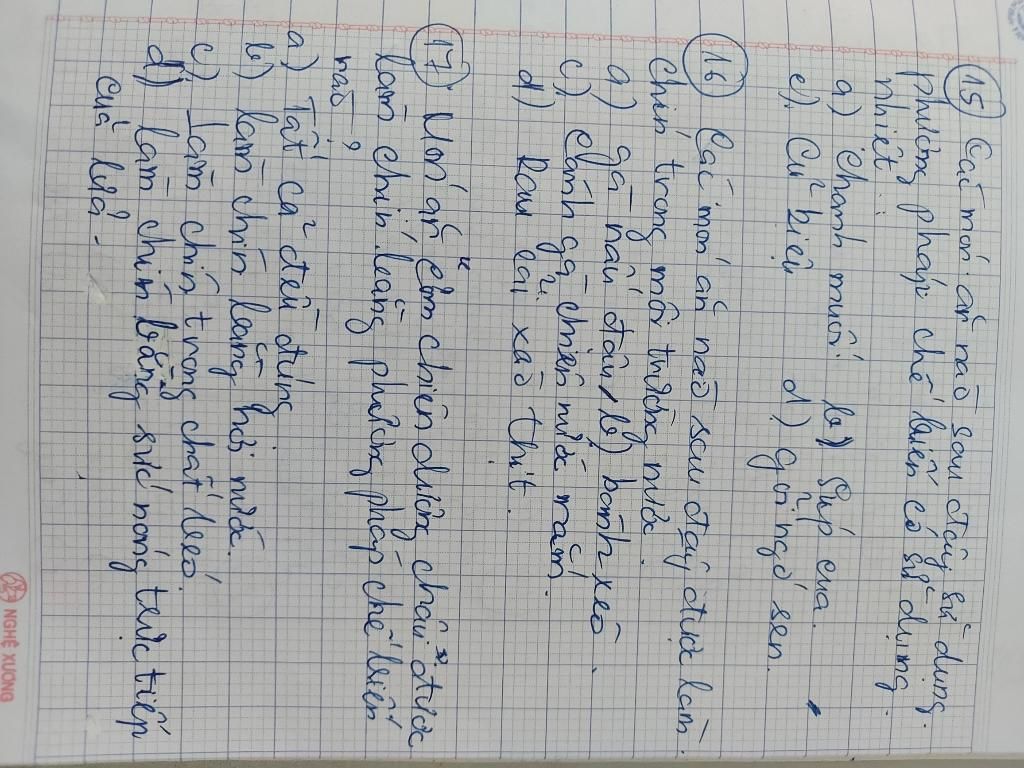 15 Các món ăn nào sau đây sử dụng
phương pháp chế biến có sử dụng
nhiệt :
a) Chanh muối b) Súp cua.
c) Củ kiệu d) gỏi ngó sen.
16 Các món ăn nào sau đây được làm
chín trong môi trường nước.
a) gà nấu đậu b) bánh xèo.
c) Cánh gà chiên nước mắm.
d) Rau cải xào thịt.
17 Món ăn "Cơm chiên dương châu" được
làm chín bằng phương pháp chế biến
nào ?
a) Tất cả đều đúng
b) làm chín bằng hơi nước.
c) Làm chín trong chất béo.
d) Làm chín bằng sức nóng trực tiếp
của lửa.
NGHỆ XƯƠNG